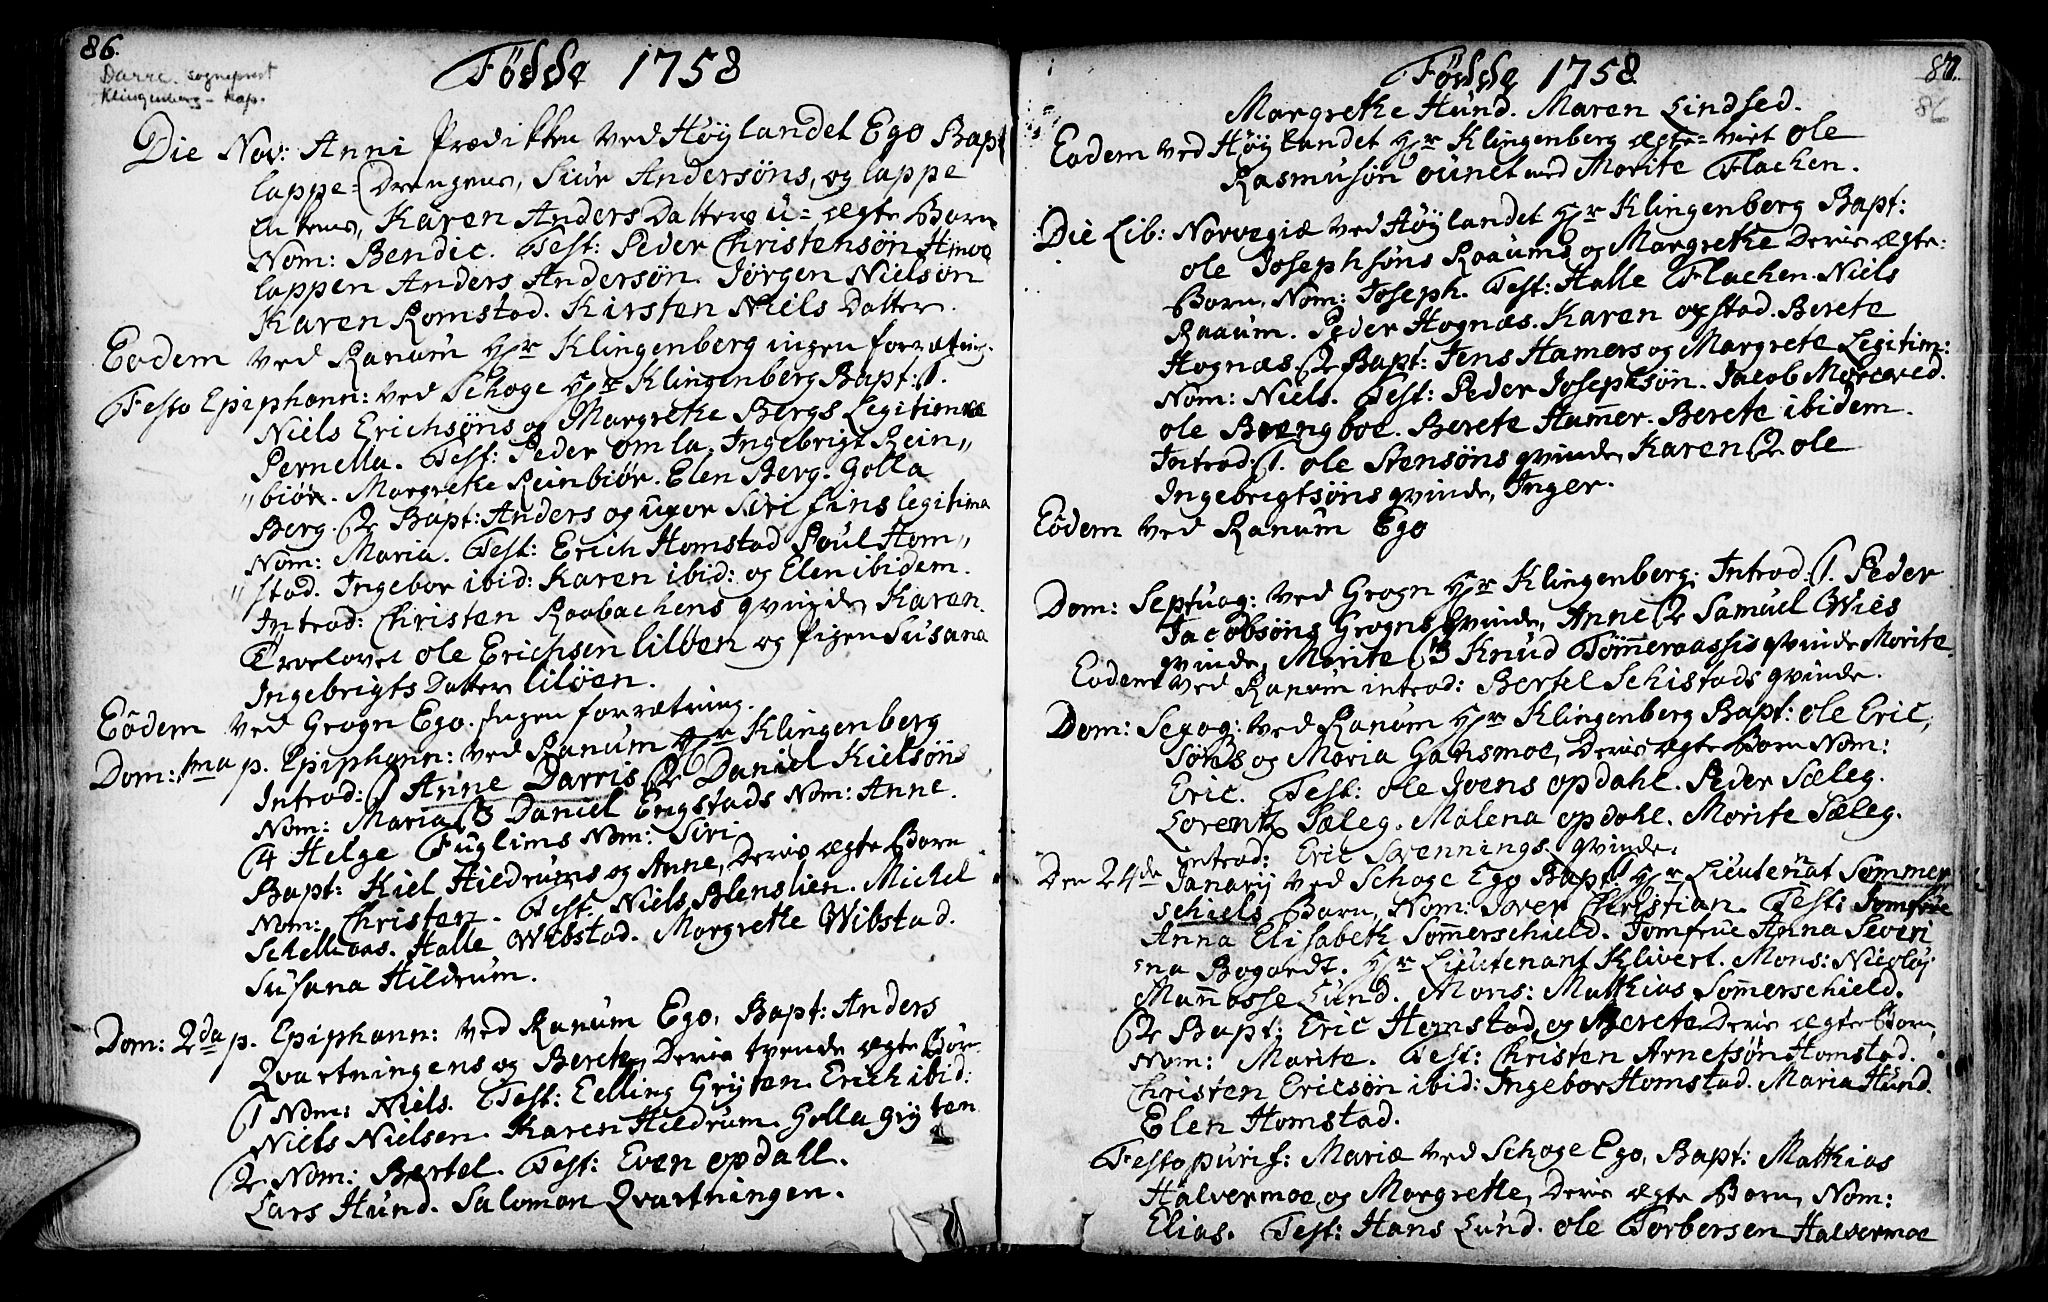 86.
Darre. sogneprest
Klingenberg - kap.
Födde 1758
Die Nov: Anni Prædikken ved Höylandet Ego Bapt
lappe-Drengens, Siur Andersöns, og lappe
Karen Anders Datters u-ægte Barn
Nom: Bendic. Test: Peder Christensön Himoe
lappen Anders Andersön. Jörgen Nielsön
Karen Romstad. Kirsten Niels Datter.
Eodem ved Ranum Hr Klingenberg ingen forrætning.
Festo Epiphann: ved Schoge Hr Klingenberg Bapt: 1.
Niels Erichsöns og Margrethe Bergs Legitima
Pernella. Test: Peder Omla. Ingebrigt Rein"
"biör. Margrethe Reinbiör. Elen Berg. Golla
Berg. 2 Bapt: Anders og uxor Siri fins legitima
Nom: Maria. Test: Erich Homstad Poul Hom"
"stad. Ingebor ibid: Karen ibid: og Elen ibidem.
Introd: Christen Raabachens qvinde Karen.
Trolovet Ole Erichsen Lilöen og pigen Susana
Ingebrigts Datter Lilöen.
Eödem ved Grogn Ego. Ingen forrætning.
Dom: 1ma p. Epiphann: ved Ranum Hr Klingenberg
Introd: 1 Anne Darris 2 Daniel Kielsöns
Nom: Maria 3 Daniel Engstads Nom: Anne.
4 Helge Fuglims Nom: Siri
Bapt: Kiel Hildrums og Anne, Deris ægte Barn
Nom: Christen. Test: Niels Blenslien. Michel
Schelliaas. Halle Wibstad. Margrethe Wibstad.
Susana Hildrum.
Dom: 2da p. Epiphann: ved Ranum Ego. Bapt: Anders
Qvartningens og Berete, Deris tvende ægte Bör
1 Nom: Niels. Test: Elling Gryten. Erich ibid:
Niels Nielsen. Karen Hildrum. Golla Gryten
2 Nom: Bertel. Test: Even Opdall.
Lars Hund. Salomon Qvartningen.
Födde 1758.
87.
86
Margrethe Hund. Maren Lindsed.
Eodem ved Höylandet Hr Klingenberg ægte-viet Ole
Rasmusön ounet med Morite Flacken.
Die Lib: Norvegiæ ved Höylandet Hr Klingenberg Bapt:
Ole Josephsöns Raaums og Margrethe Deris ægte-
Barn, Nom: Joseph. Test: Halle Flacken. Niels
Raaum. Peder Hognæs. Karen opstad. Berete
Hognæs 2 Bapt: Jens Hamers og Margrete Legitim:
Nom: Niels. Test: Peder Josephsön. Jacob
Ole Brengboe. Berete Ham̅er. Berete ibidem.
Introd: 1. Ole Stensöns qvinde, Karen 2 Ole
Ingebrigtsöns qvinde, Inger.
Eödem ved Ranum Ego
Dom: Septuag: ved Grogn Hr Klingenberg: Introd: 1. Peder
Jacobsöns Grogns Qvinde, Anne 2 Samuel Wies
qvinde, Morite 3 Knud Töm̅eraassis qvinde Morite.
Eodem ved Ranum introd: Bertel Schistads qvinde.
Dom: Sexag: ved Ranum Hr Klingenberg Bapt: Ole Eric,
söns og Maria Gansmoe, Deris ægte Barn Nom:
Eric. Test: Ole Joens opdahl. Peder Sæleg.
Lorentz Sæleg. Malena opdahl. Morite Sæleg.
Introd: Eric Sørennings qvinde.
Den 24de Janarij ved Schoge Ego Bapt 1 Hr Lieutenat Som̅er
schiels Barn, Nom: Soren Christian. Test: Jomfrue
Anna Elisabeth Som̅erschield. Jomfrue Anna Severi
"na Bogardt. Hr Lieutenant Klivert. Mons: Nicolaj
Man̅asse Lund. Mons: Mathias Som̅erschield.
2 Bapt: Eric Homstad og Berete Deris ægte Barn,
Nom: Marite. Test: Christen Arnetsön Homstad.
Christen Ericsön ibid: Ingebor Homstad. Maria Hund.
Elen Homstad.
Festo purif: Mariæ ved Schoge Ego, Bapt: Mathias
Halvermoe og Margrethe, Deris ægte Barn, Nom:
Elias. Test: Hans Lund. Ole Torbersen Halvermoe